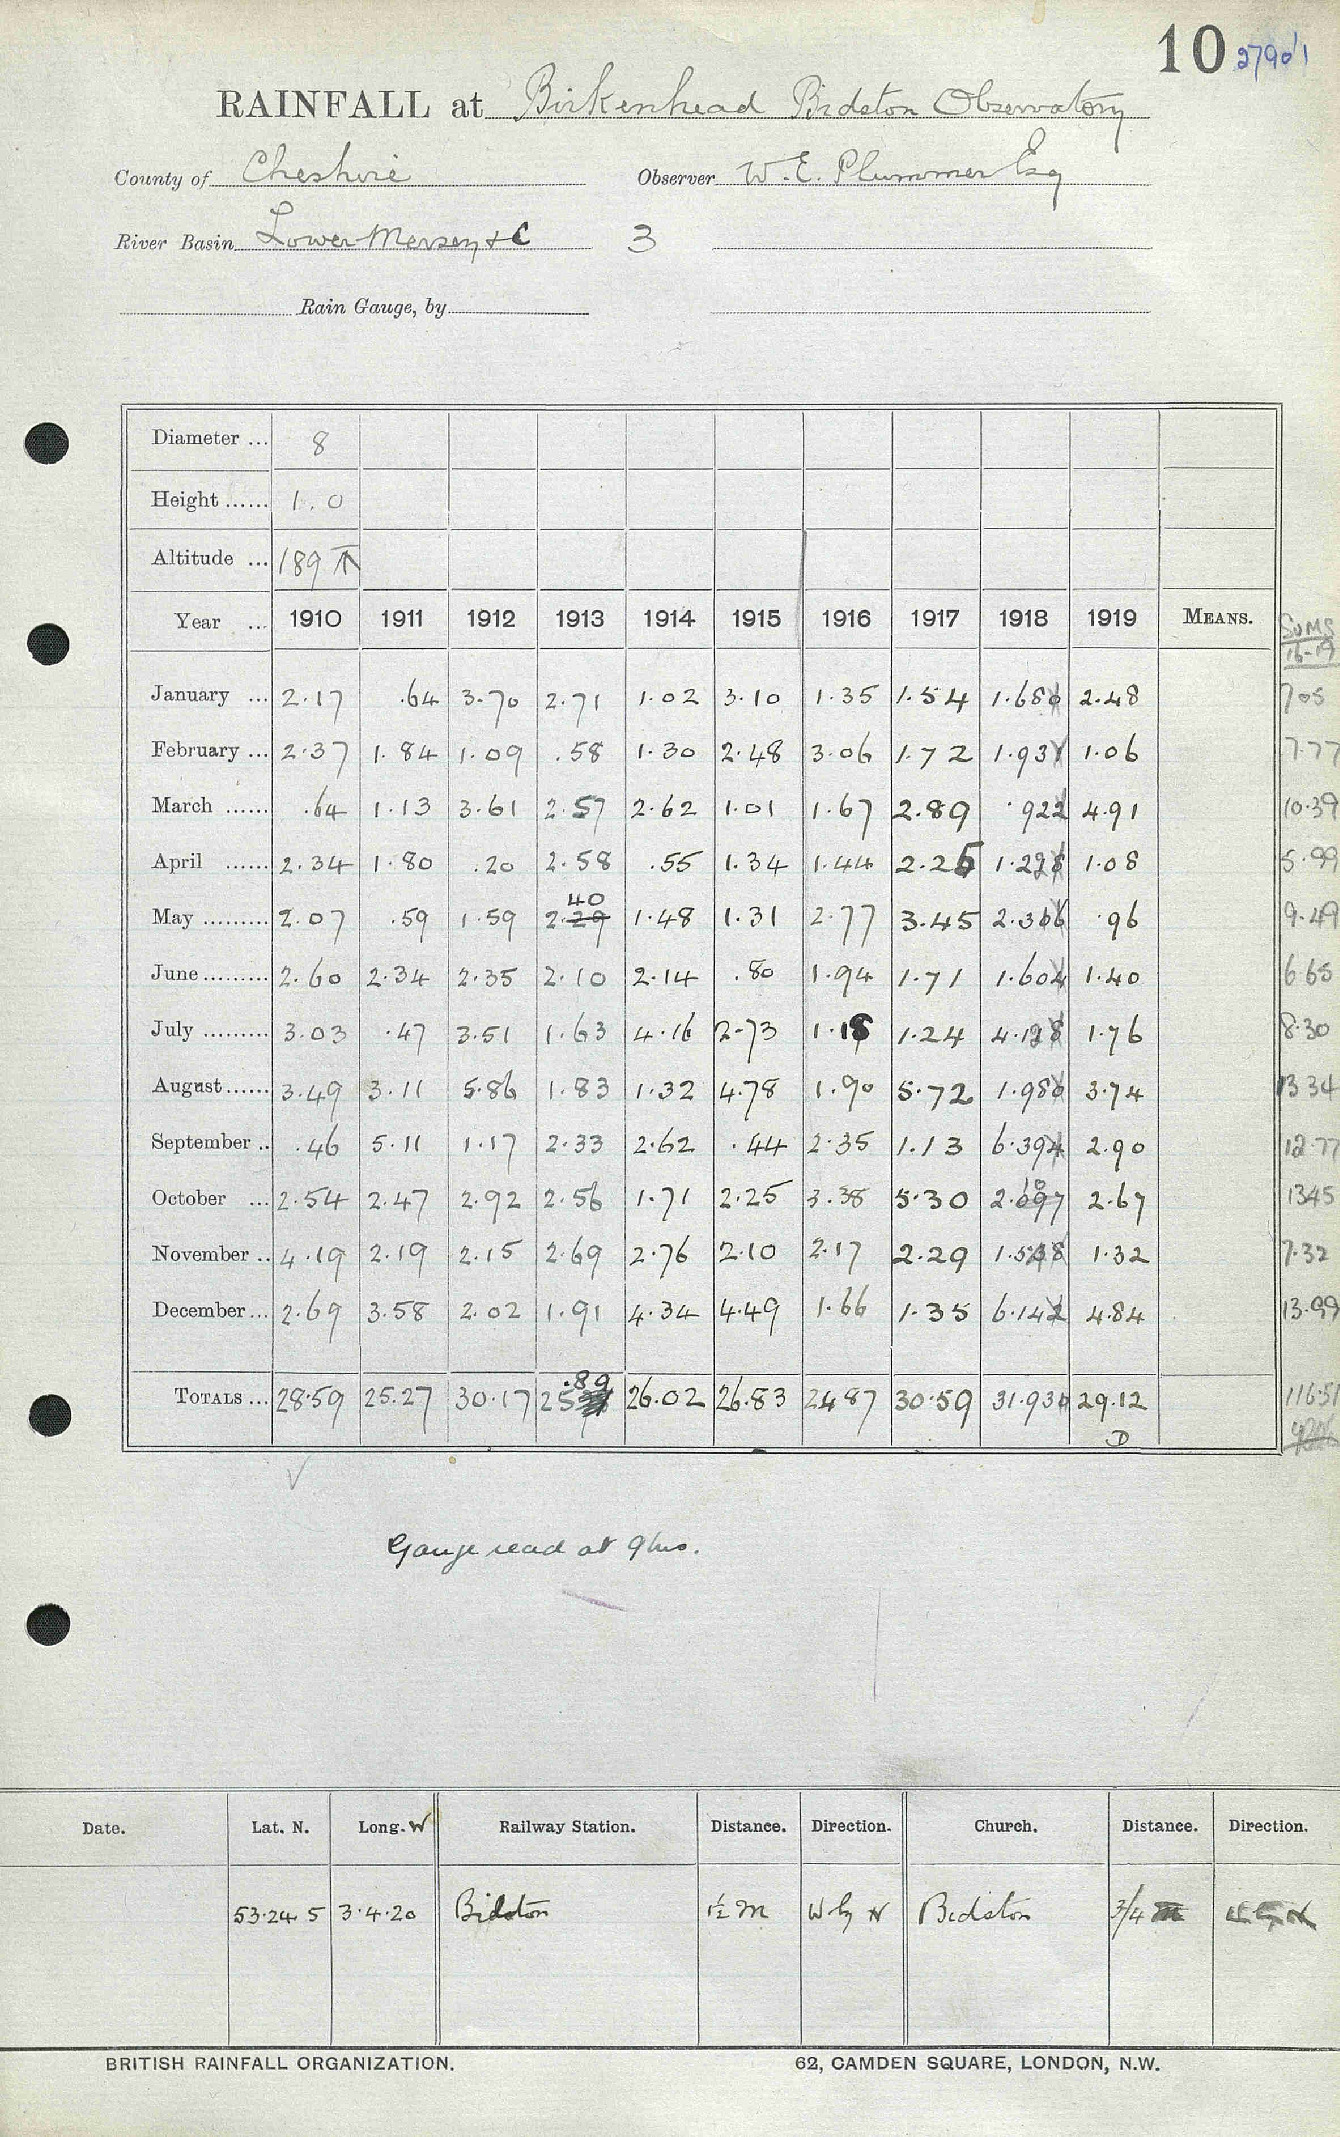 10 27901
RAINFALL at Birkenhead Bidston Observatory
County of Cheshire Observer W. E. Plummer Esq
River Basin Lower Mersey & C 3
Rain Gauge, by
Diameter ... 8
Height ...... 1.0
Altitude ... 189
Year ... 1910 1911 1912 1913 1914 1915 1916 1917 1918 1919 MEANS. SUMS 16-19
January ... 2.17 .64 3.70 2.71 1.02 3.10 1.35 1.54 1.68 2.48 7.05
February ... 2.37 1.84 1.09 .58 1.30 2.48 3.06 1.72 1.93 1.06 7.77
March ...... .64 1.13 3.61 2.57 2.62 1.01 1.67 2.89 .92 4.91 10.39
April ...... 2.34 1.80 .20 2.58 .55 1.34 1.44 2.25 1.22 1.08 5.99
40
May ......... 2.07 .59 1.59 2.29 1.48 1.31 2.77 3.45 2.3 .96 9.49
June ......... 2.60 2.34 2.35 2.10 2.14 .80 1.94 1.71 1.60 1.40 6.65
July ......... 3.03 .47 3.51 1.63 4.16 2.73 1.18 1.24 4.12 1.76 8.30
August ...... 3.49 3.11 5.86 1.83 1.32 4.78 1.90 5.72 1.98 3.74 13.34
September .. .46 5.11 1.17 2.33 2.62 .44 2.35 1.13 6.39 2.90 12.77
October ... 2.54 2.47 2.92 2.56 1.71 2.25 3.38 5.30 2.67 13.45
November .. 4.19 2.19 2.15 2.69 2.76 2.10 2.17 2.29 1.32 7.32
December ... 2.69 3.58 2.02 1.91 4.34 4.49 1.66 1.35 6.14 4.84 13.99
.89
TOTALS ... 28.59 25.27 30.17 25 26.02 26.83 24.87 30.59 31.93 29.12 116.51
D
Gauge read at 9 hrs.
Date. Lat. N. Long. W Railway Station. Distance. Direction. Church. Distance. Direction.
53.24 5 3.4.20 Bidston 1½ m W by N Bidston 3/4
BRITISH RAINFALL ORGANIZATION. 62, CAMDEN SQUARE, LONDON, N.W.